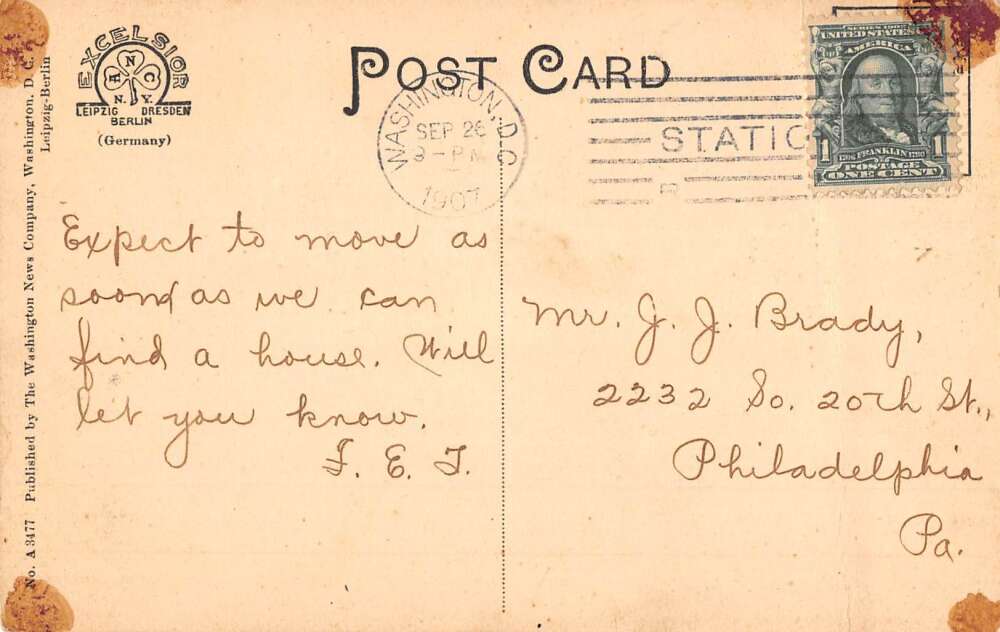 EXCELSIOR
A N C
N. Y.
LEIPZIG DRESDEN
BERLIN
(Germany)
POST CARD
WASHINGTON, D.C.
SEP 26
9-PM
1907
STATIO
SERIES 1902
UNITED STATES OF
AMERICA
1 1
1706 FRANKLIN 1790
POSTAGE
ONE CENT
Expect to move as
soon as we can
find a house. Will
let you know.
Mr. J. J. Brady,
2232 So. 20th St.,
Philadelphia
Pa.
No. A 3477 Published by The Washington News Company, Washington, D. C.
Leipzig-Berlin